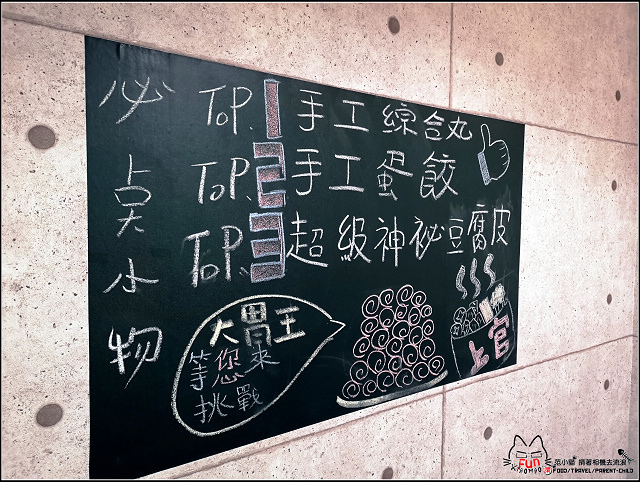 必点小物
TOP.1手工綜合丸
TOP.2手工蛋餃
TOP.3超級神祕豆腐皮
大胃王
等您來
挑戰
上官
Fun
范小貓 揹著相機去流浪
FOOD/TRAVEL/PARENT-CHILD